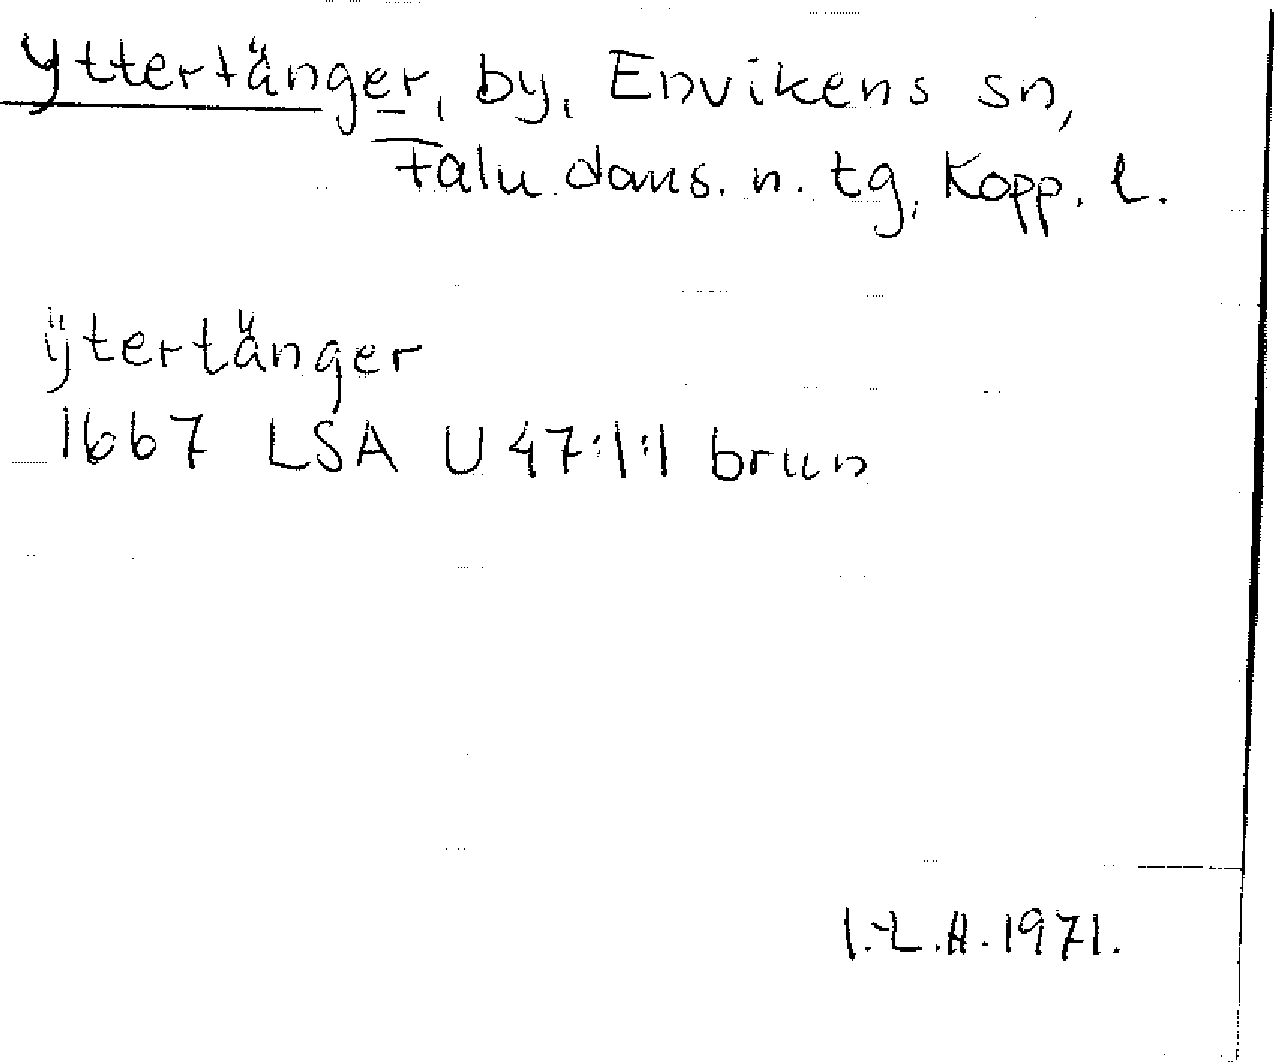 Yttertänger, by, Envikens sn,
Falu doms. n. tg, Kopp. l.
ÿtertänger
1667 LSA U 47:1:1 brun
I.-L.A. 1971.